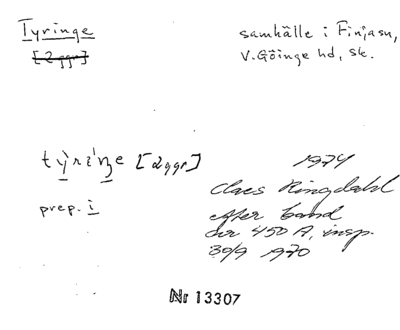 Tyringe
[2 ggr]
samhälle i Finjasn,
V. Göinge hd, Sk.
tỳri`ŋe [2 ggr]
prep. i
1974
Claes Ringdahl
efter band
nr 450 A, insp.
30/9 1970
Nr 13307